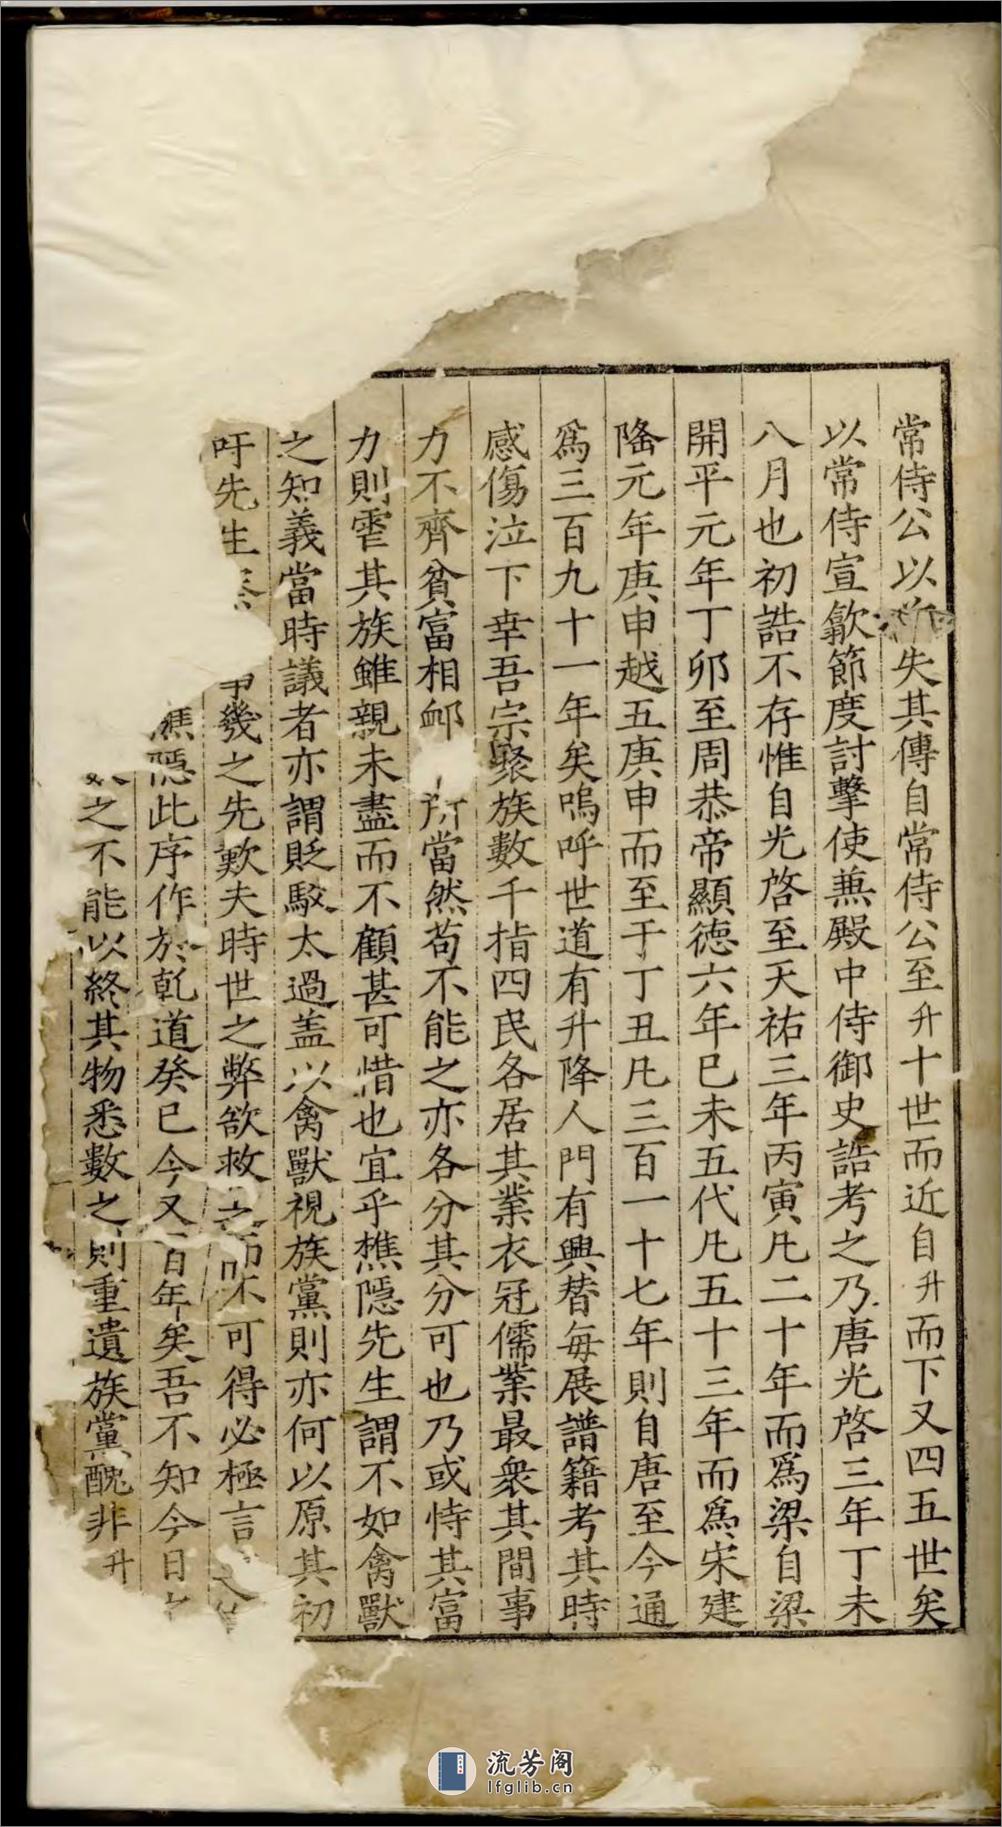 常侍公以失其傳自常侍公至升十世而近自升而下又四五世矣
以常侍宣歙節度討擊使兼殿中侍御史誥考之乃唐光啓三年丁未
八月也初誥不存惟自光啓至天祐三年丙寅凡二十年而爲梁自梁
開平元年丁卯至周恭帝顯德六年巳未五代凡五十三年而爲宋建
隆元年庚申越五庚申而至于丁丑凡三百一十七年則自唐至今通
爲三百九十一年矣嗚呼世道有升降人門有興替每展譜籍考其時
感傷泣下幸吾宗聚族數千指四民各居其業衣冠儒業最衆其間事
力不齊貧富相邺所當然苟不能之亦各分其分可也乃或恃其富
力則雫其族雖親未盡而不顧甚可惜也宜乎樵隱先生謂不如禽獸
之知義當時議者亦謂貶駮太過盖以禽獸視族黨則亦何以原其初
吁先生幾之先歟夫時世之弊欲救之而不可得必極言
樵隱此序作於乾道癸巳今又百年矣吾不知今日
之不能以終其物悉數之則重遺族黨醜非升
流芳阁
lfglib.cn